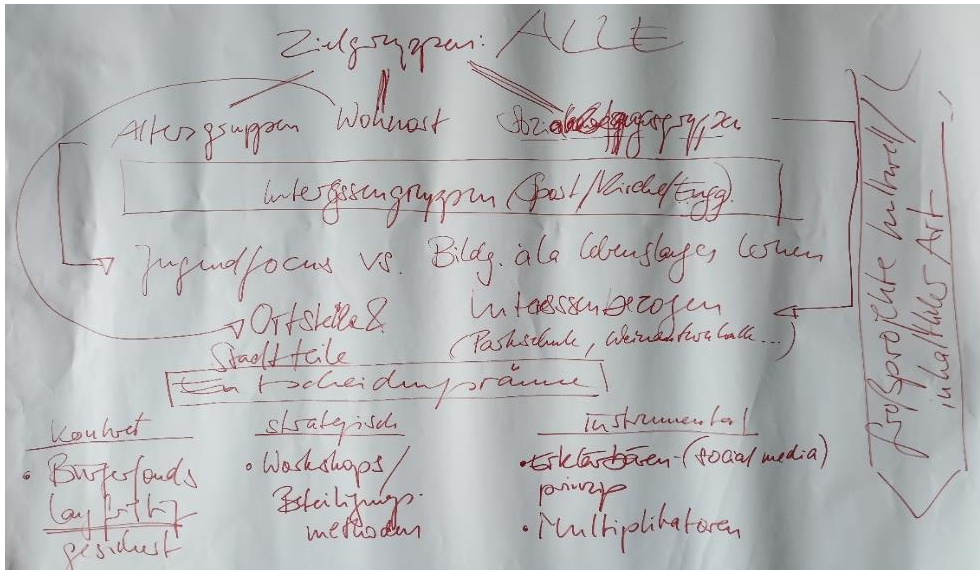 Zielgruppen: ALLE
Altersgruppen Wohnort
Interessengruppen (Sport/Kirche/Engg.)
Jugendfocus vs. Bildg. à la lebenslanges Lernen
Ortsteile & Interessenbezogen
Stadtteile (Parkschule, ...)
Entscheidungsräume
konkret
• Bürgerfonds
langfristig
gesichert
strategisch
• Workshops/
Beteiligungs-
methoden
instrumental
• Erklärbären-(social media)
prinzip
• Multiplikatoren
Großprojekte kultureller/
inhaltlicher Art